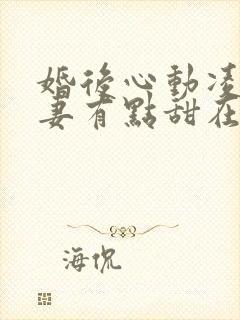 婚後心動凌
妻有點甜在
海侃